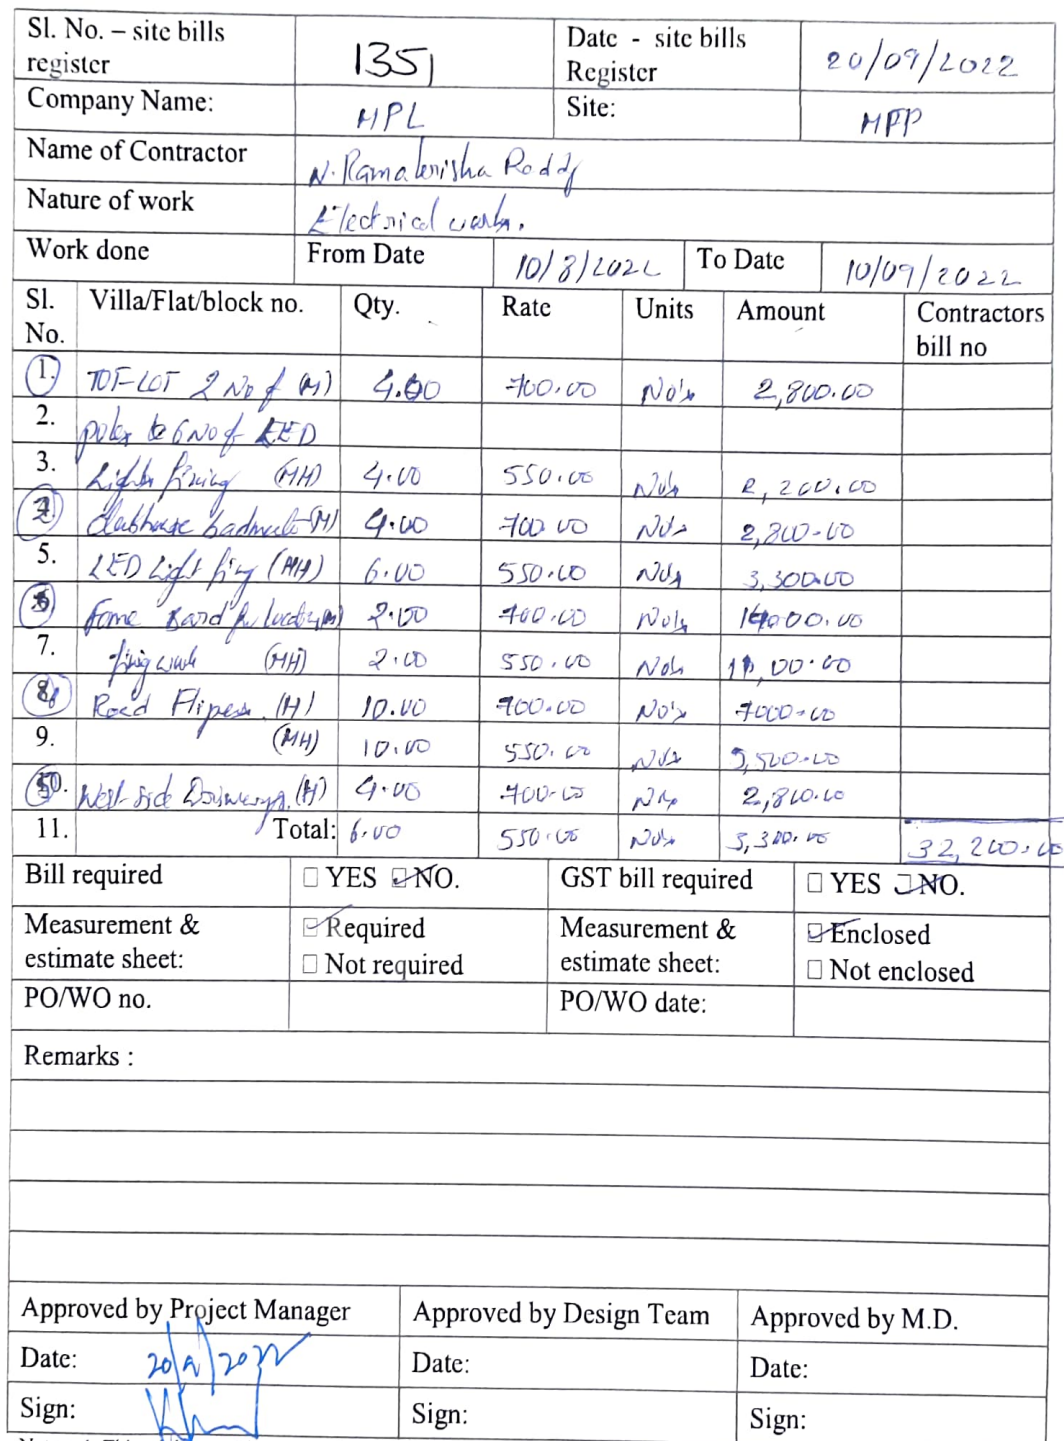 Sl. No. – site bills register 1351 Date - site bills Register 20/09/2022
Company Name: MPL Site: MPP
Name of Contractor N. Ramakrisha Reddy
Nature of work Electrical works.
Work done From Date 10/8/2022 To Date 10/09/2022
Sl. No. Villa/Flat/block no. Qty. Rate Units Amount Contractors bill no
1. TOT-LOT 2 No of (M) 4.00 700.00 No's 2,800.00
2. poles to 6 No of LED
3. Lights fixing (MH) 4.00 550.00 No's 2,200.00
Clubhouse (M) 4.00 700.00 No's 2,800.00
5. LED Light fixing (MH) 6.00 550.00 No's 3,300.00
Board (M) 2.00 700.00 No's 1400.00
7. fixing work (MH) 2.00 550.00 No's 11,00.00
8. Road (M) 10.00 700.00 No's 7000.00
9. (MH) 10.00 550.00 No's 5,500.00
10. West side (M) 4.00 700.00 No's 2,800.00
11. Total: 6.00 550.00 No's 3,300.00 32,200.00
Bill required □ YES ☑ NO. GST bill required □ YES ☑ NO.
Measurement & estimate sheet: ☑ Required □ Not required Measurement & estimate sheet: ☑ Enclosed □ Not enclosed
PO/WO no. PO/WO date:
Remarks :
Approved by Project Manager Approved by Design Team Approved by M.D.
Date: 20/9/2022 Date: Date:
Sign: Sign: Sign: